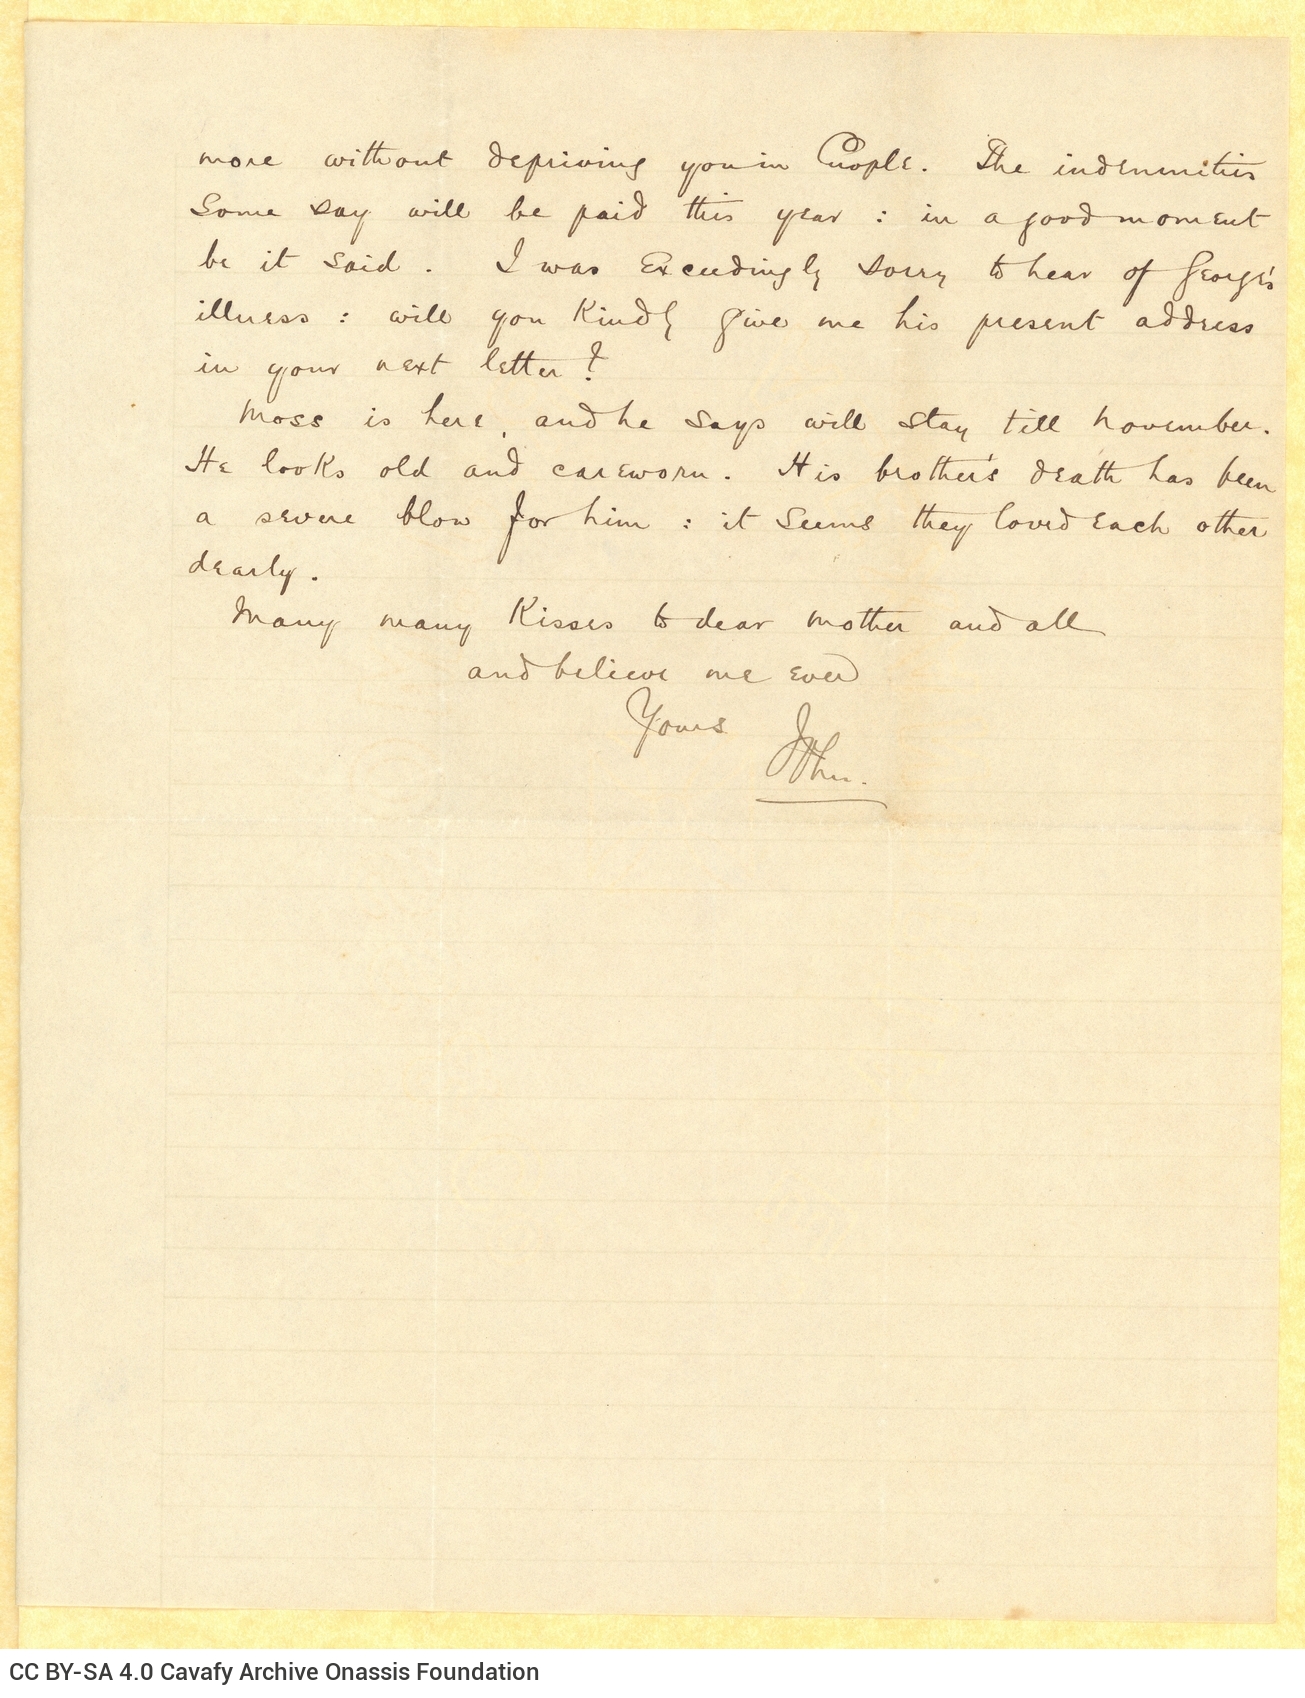 more without depriving you in Cnople. The indemnities
some say will be paid this year : in a good moment
be it said. I was exceedingly sorry to hear of George's
illness : will you kindly give me his present address
in your next letter?
Moss is here, and he says will stay till November.
He looks old and careworn. His brother's death has been
a severe blow for him : it seems they loved each other
dearly.
Many many kisses to dear mother and all
and believe me ever
Yours John.
CC BY-SA 4.0 Cavafy Archive Onassis Foundation